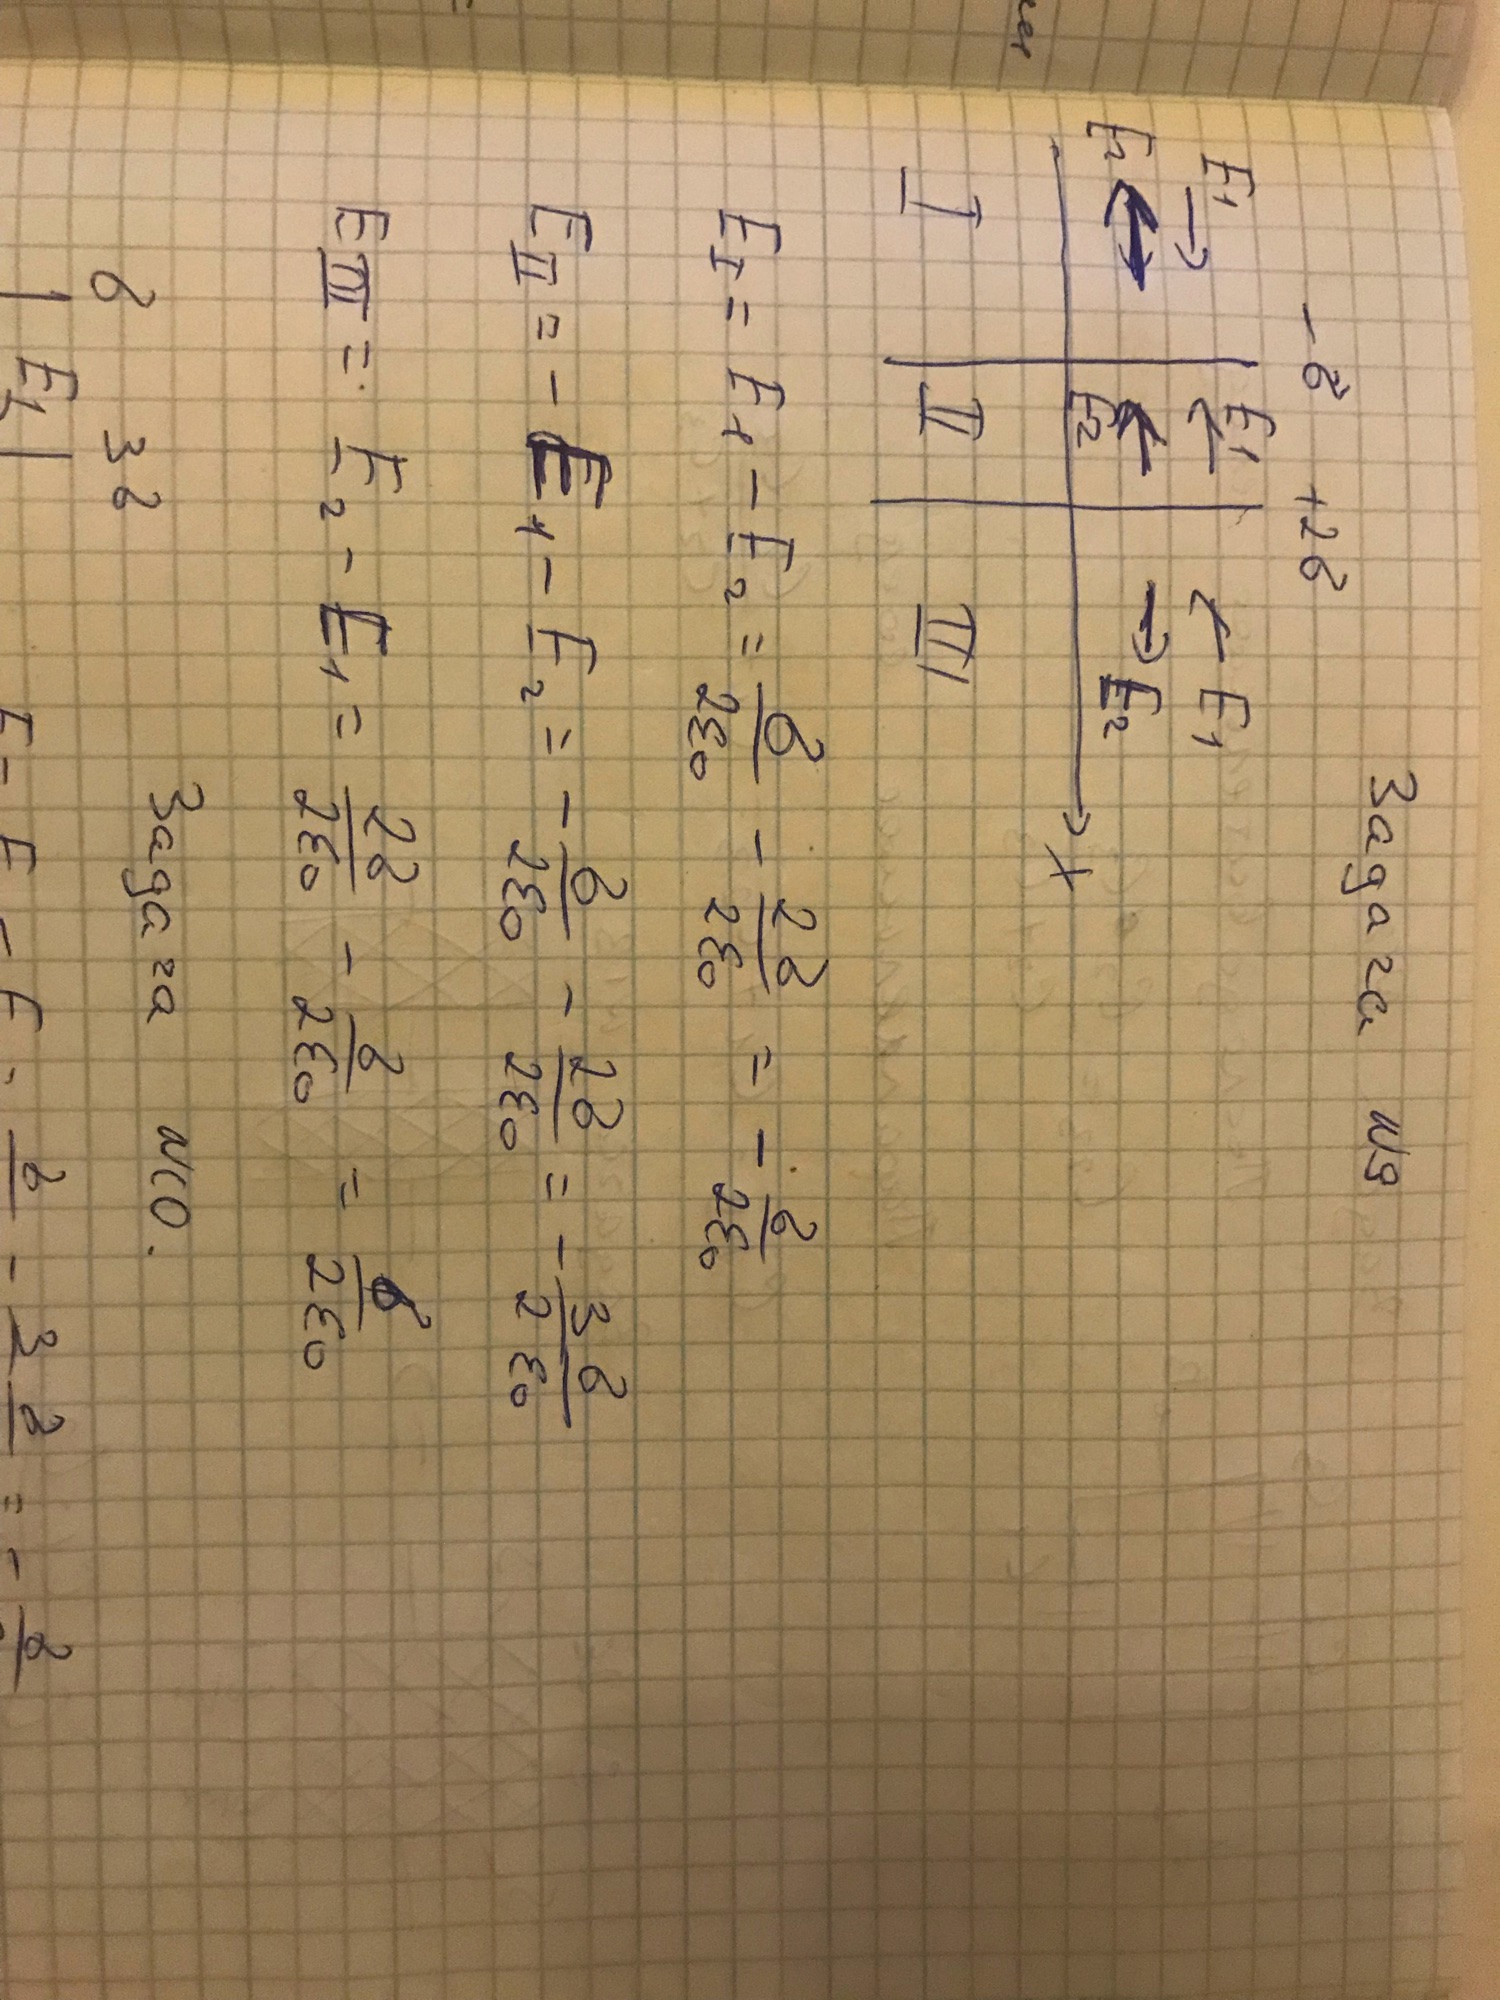 Задача №9
-σ +2σ
E1 E1 E1
E2 E2 E2
X
I II III
E_I = E_1 - E_2 = σ/2ε_0 - 2σ/2ε_0 = - σ/2ε_0
E_II = - E_1 - E_2 = - σ/2ε_0 - 2σ/2ε_0 = - 3σ/2ε_0
E_III = E_2 - E_1 = 2σ/2ε_0 - σ/2ε_0 = σ/2ε_0
Задача №10.
σ 3σ
E1